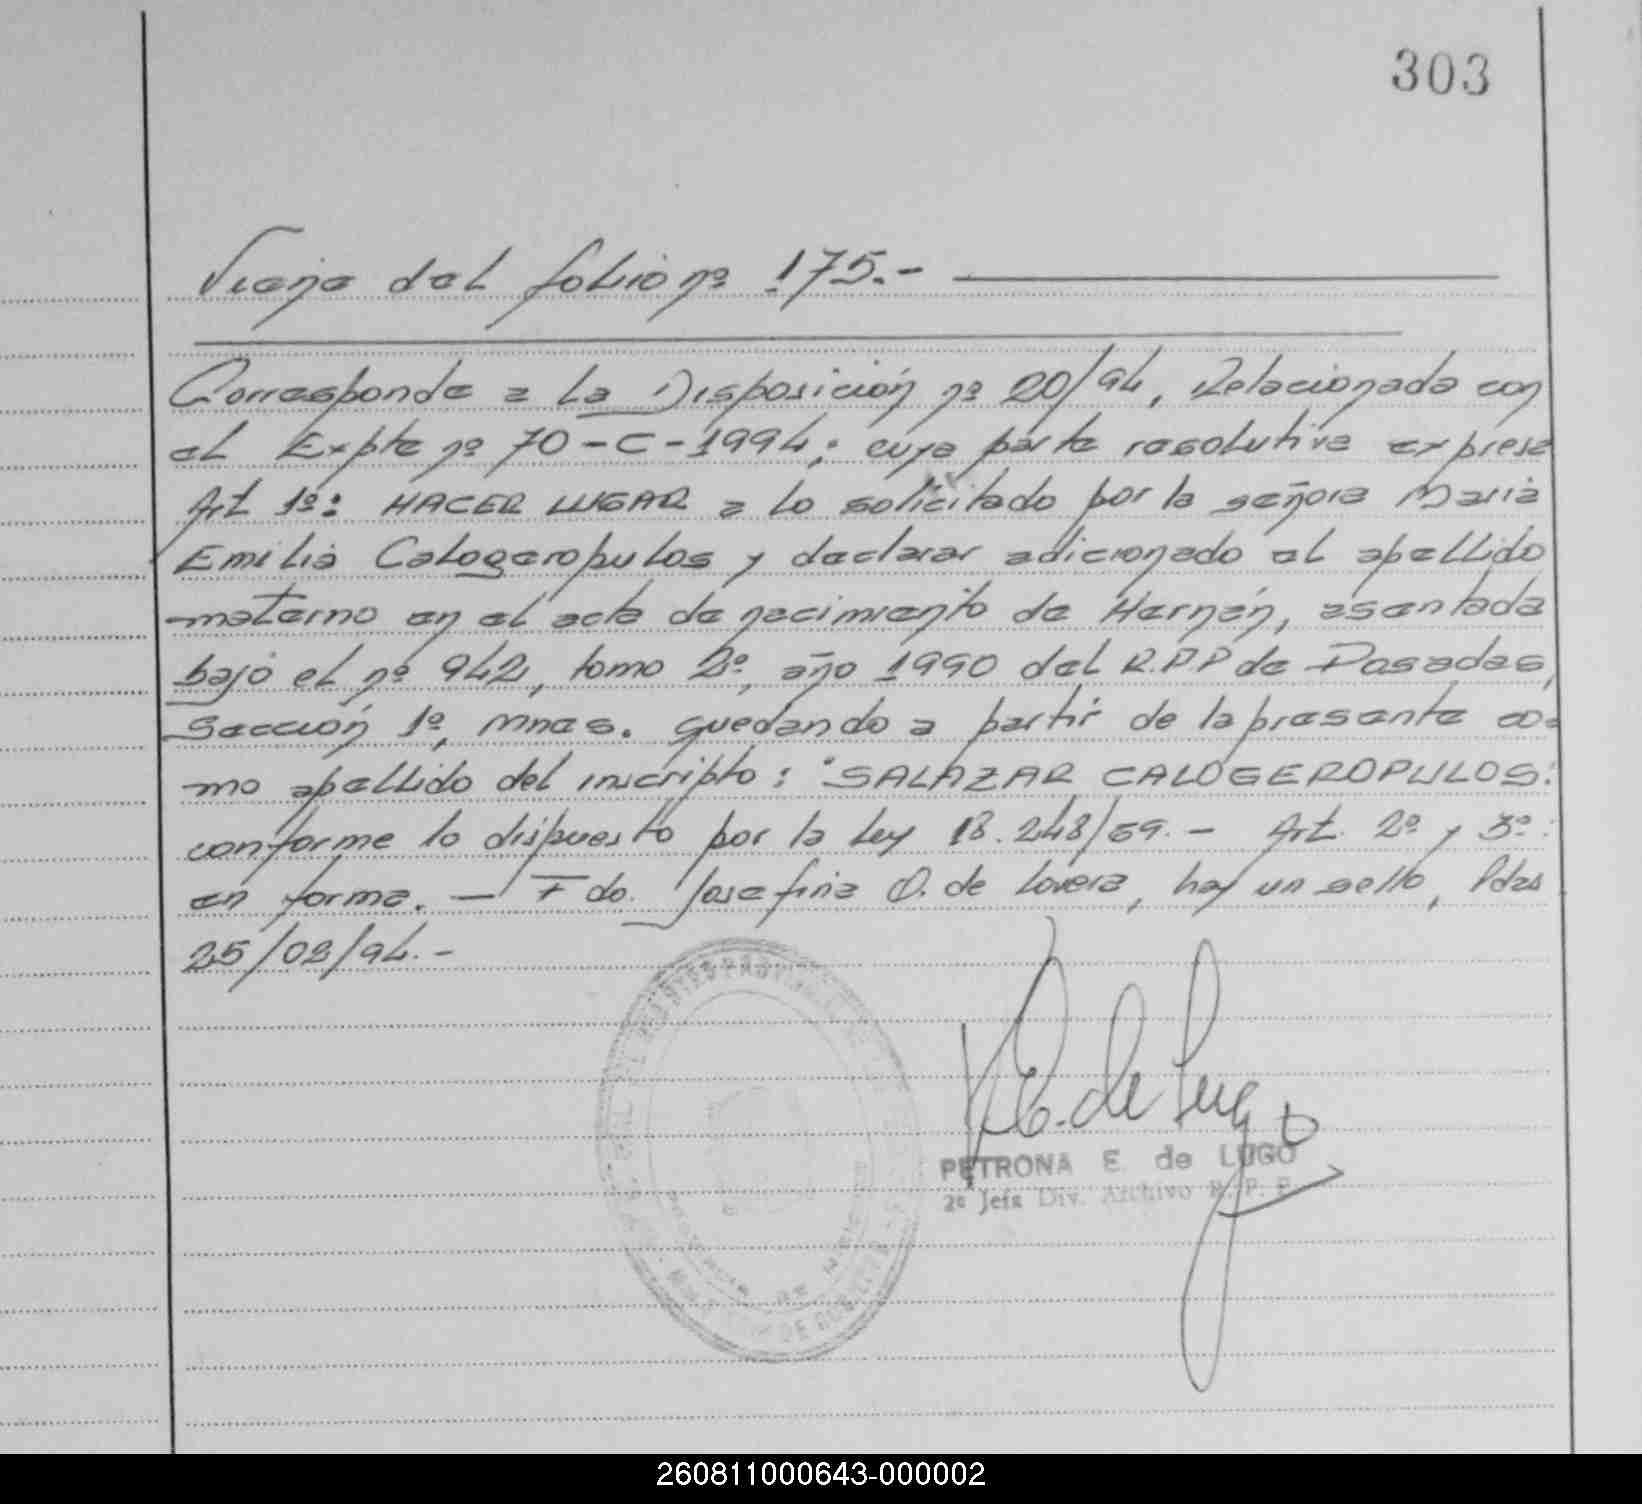 303
Viene del folio nº 175.-
Corresponde a la Disposición nº 20/94, Relacionada con
el Expte nº 70-C-1994; cuya parte resolutiva expresa
Art 1º: HACER LUGAR a lo solicitado por la señora Maria
Emilia Calogeropulos y declarar adicionado el apellido
materno en el acta de nacimiento de Hernán, asentada
bajo el nº 942, tomo 2º, año 1990 del R.P.P de Posadas,
Sección 1º, Mnes. quedando a partir de la presente co-
mo apellido del inscripto: "SALAZAR CALOGEROPULOS"
conforme lo dispuesto por la Ley 18.248/69.- Art. 2º y 3º:
en forma. - Fdo. Josefina O. de Lovera, hay un sello, Pdas
25/02/94.-
P E. de Lugo
PETRONA E. de LUGO
2º Jefa Div. Archivo R. P. P.
260811000643-000002